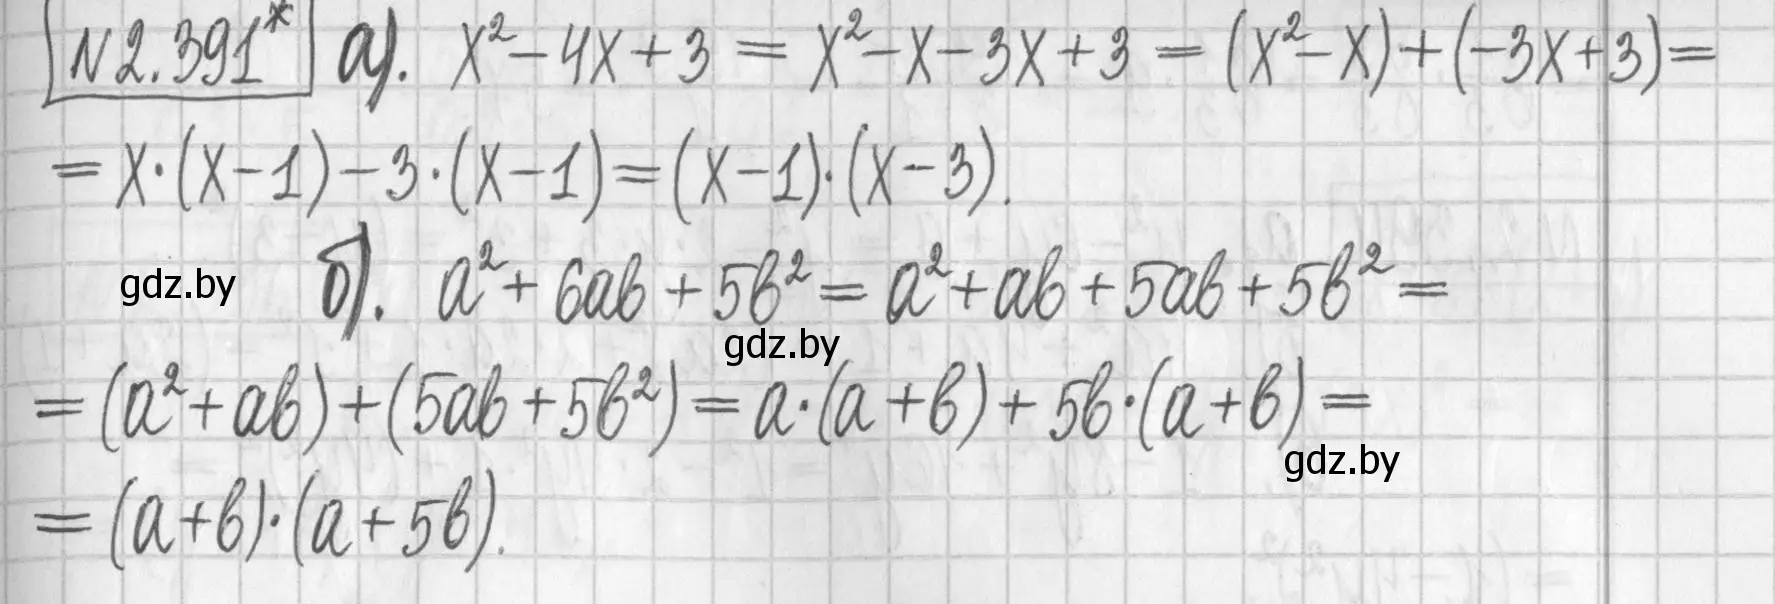 N 2.391* а). x² - 4x + 3 = x² - x - 3x + 3 = (x² - x) + (-3x + 3) =
= x · (x - 1) - 3 · (x - 1) = (x - 1) · (x - 3).
gdz.by б). a² + 6ab + 5b² = a² + ab + 5ab + 5b² =
gdz.by
= (a² + ab) + (5ab + 5b²) = a · (a + b) + 5b · (a + b) =
gdz.by
= (a + b) · (a + 5b).